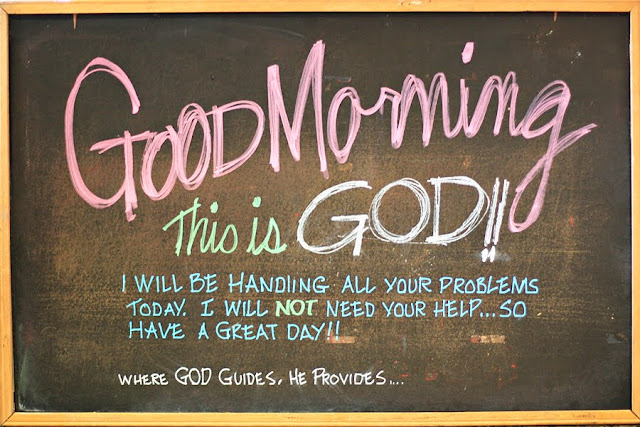 Good Morning
This is GOD!!
I WILL BE HANDLING ALL YOUR PROBLEMS
TODAY. I WILL NOT NEED YOUR HELP...SO
HAVE A GREAT DAY!!
WHERE GOD GUIDES, HE PROVIDES....